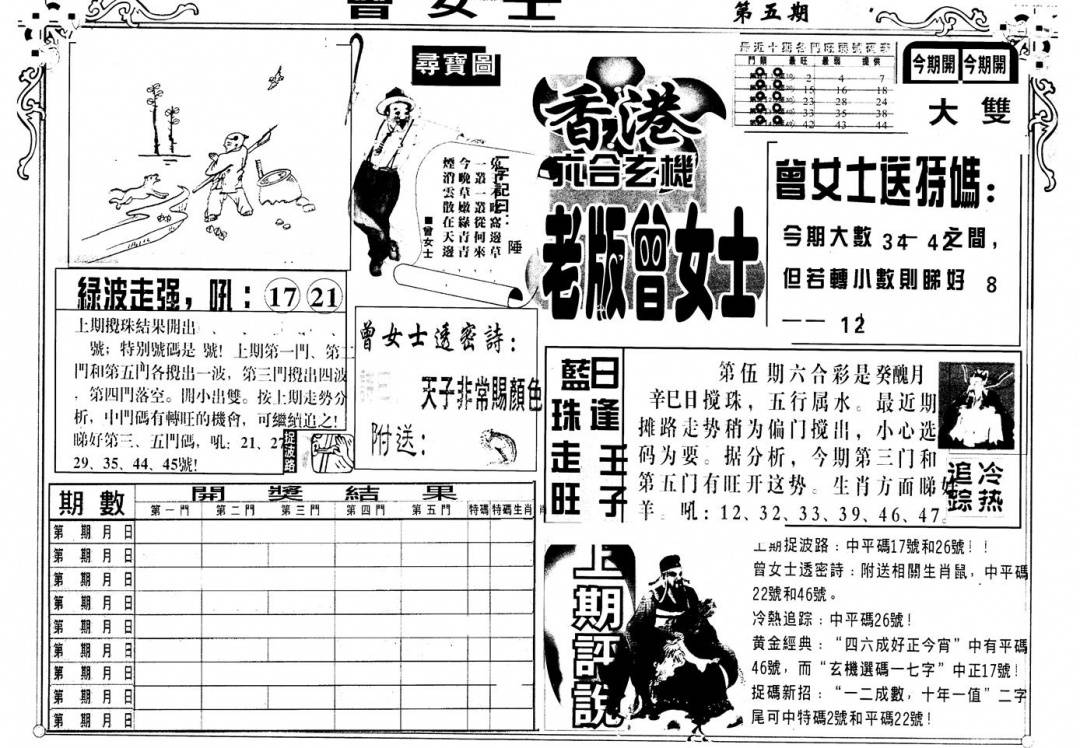 曾女士
第五期
尋寶圖
香港
六合玄機
老版曾女士
最近十期各門旺弱號碼表
門類 最旺 最弱 提供
2 4 7
15 16 18
23 28 24
33 35 38
42 43 44
今期開 今期開
大 雙
曾女士送特碼：
今期大數 34一42之間，
但若轉小數則睇好 8
一一 12
一字記曰：
陲
兔子不吃窩邊草
一叢一叢從何來
今晚草嫩綠青青
煙消雲散在天邊
■曾女士
綠波走强，吼：17 21
上期攪珠結果開出
號；特别號碼是 號！上期第一門、第二
門和第五門各攪出一波，第三門攪出四波
，第四門落空。開小出雙。按上期走勢分
析，中門碼有轉旺的機會，可繼續追之！
睇好第三、五門碼，吼：21、27
29、35、44、45號！
捉波路
曾女士透密詩：
天子非常賜顏色
附送：
藍珠走旺
日逢壬子
第伍期六合彩是癸醜月
辛巳日搅珠，五行属水。最近期
摊路走势稍为偏门搅出，小心选
码为要。据分析，今期第三门和
第五门有旺开这势。生肖方面睇好
羊。吼：12、32、33、39、46、47。
冷热
追踪
期數
開獎結果
第一門 第二門 第三門 第四門 第五門 特碼 特碼生肖
第 期 月 日
第 期 月 日
第 期 月 日
第 期 月 日
第 期 月 日
第 期 月 日
第 期 月 日
第 期 月 日
第 期 月 日
上期評說
上期捉波路：中平碼17號和26號！！
曾女士透密詩：附送相關生肖鼠，中平碼
22號和46號。
冷熱追踪：中平碼26號！
黄金經典：“四六成好正今宵”中有平碼
46號，而“玄機選碼一七字”中正17號！
捉碼新招：“一二成數，十年一值”二字
尾可中特碼2號和平碼22號！